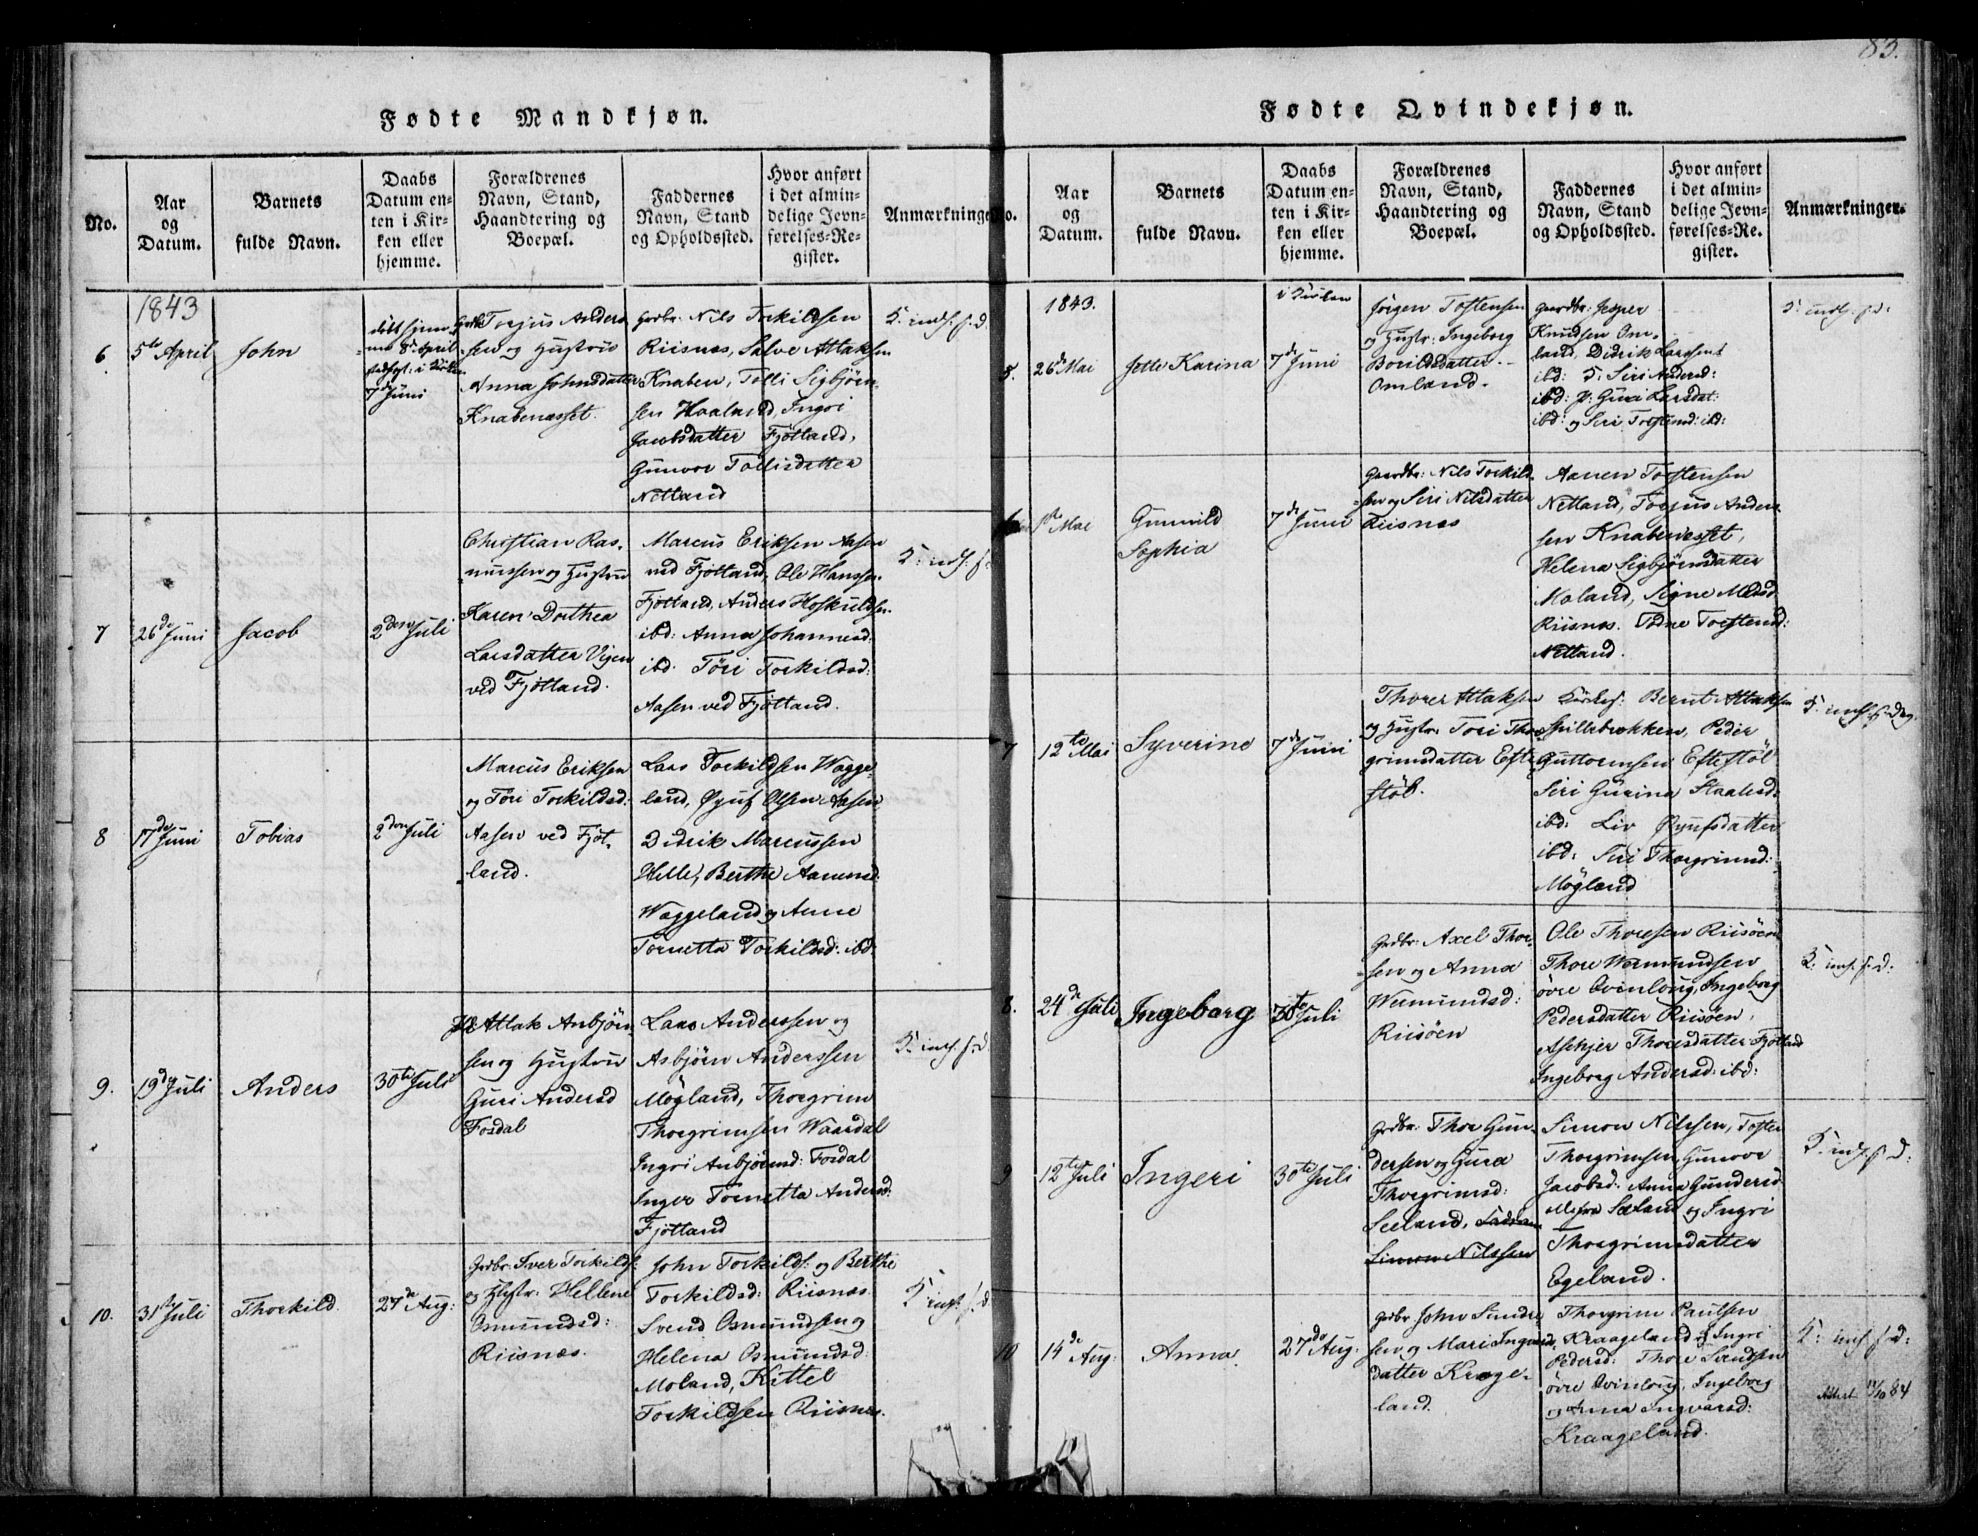 83.
Fødte Mandkjøn.
No.
Aar
og
Datum.
Barnets
fulde Navn.
Daabs
Datum en-
ten i Kir-
ken eller
hjemme.
Forældrenes
Navn, Stand,
Haandtering og
Boepæl.
Faddernes
Navn, Stand
og Opholdssted.
Hvor anført
i det almin-
delige Jevn-
førelses-Re-
gister.
Anmærkninger
1843
6.
5te April
John
8de April
i Kirken
7de Juni
Torjus Anders
sen og Hustrue
Anna Johnsdatter
Knabenæsset.
Grdbr: Nils Torkildsen
Riisnes, Salve Attaksen
Knaben, Tolli Sigbjørn-
sen Haaland, Ingri
Jacobsdatter Fjotland,
Gunvor Tollisdatter
Netland
7
26de Juni
Jacob
2den Juli
Christian Ras-
mussen og Hustru
Karen Dorthea
Larsdatter Vigen
ved Fjotland.
Marcus Eriksen Aasen
ved Fjotland, Ole Hanssen
Fjotland, Anders Hoskuldsen
ibd: Anna Johannesd:
ibd. Tøri Torkildsd:
Aasen ved Fjotland.
8
17de Juni
Tobias
2den Juli
Marcus Eriksen
og Tøri Torkildsd:
Aasen ved Fjot-
land.
Lars Torkildsen Wagge-
land, Øyuf Olsen Aasen
Didrik Marcussen
Helle, Berthe Aanensd:
Waggeland og Anne
Tornetta Torkildsd: ibd:
9.
19de Juli
Anders
30te Juli
Attak Anbjørn
sen og Hustru
Guri Andersd
Fosdal
Lars Anderssen og
Asbjørn Anderssen
Møgland, Thorgrim
Thorgrimsen Waardal
Ingri Anbjørnsd: Fosdal
Inger Tornetta Andersd:
Fjotland
10.
31te Juli
Thorkild.
27de Aug:
Grdbr: Iver Torkilds:
og Hustr: Hellene
Osmundsd:
Riisnæs.
John Torkilds: og Berthe
Torkildsd: Riisnæs.
Svend Osmundsen og
Helena Osmundsd:
Moland, Kittel
Torkildsen Riisnes.
Fødte Qvindekjøn.
No.
Aar
og
Datum.
Barnets
fulde Navn.
Daabs
Datum en-
ten i Kir-
ken eller
hjemme.
Forældrenes
Navn, Stand,
Haandtering og
Boepæl.
Faddernes
Navn, Stand
og Opholdssted.
Hvor anført
i det almin-
delige Jevn-
førelses-Re-
gister.
Anmærkninger.
1843.
i Kirken
5.
26de Mai
Jette Karina
7de Juni
Jørgen Tostensen
og Hustr: Ingeborg
Borildsdatter
Omland.
Gaardbr: Jesper
Knudsen Om-
land, Didrik Larssen
ibd: Siri Andersd:
ibd: Guri Larsdat:
ibd: og Siri Tostensd: ibd:
Mai
Gunvild
Sophia
7de Juni
Gaardbr: Nils Torkild-
sen og Siri Nilsdatter
Riisnes
Aanen Torstensen
Netland, Torjus Ander-
sen Knabenæsset,
Helena Sigbjørnsdatter
Moland, Signe
Riisnes. Todne Torstensd:
Netland.
7
12te Mai
Syverine
7de Juni
Thorer Attaksen
og Hustr: Tori Thor-
grimsdatter Efte-
støl.
Bernt Attaksen
Spillebrekken, Peder
Guttormsen Eftestøl
Siri Gurina
ibd: Liv Øyufsdatter
ibd: Siri Thorgrimsd:
Møgland
8.
24de Juli
Ingeborg
30te Juli
Grdbr: Axel Thor-
sen og Anna
Wermundsd:
Riisøen
Ole Thoresen Riisøen
Thore Wermundsen
øvre Qvinlong, Ingeborg
Pedersdatter Riisøen,
Askjer Thoresdatter Fjotland
Ingeborg Andersd: ibd:
9
12te Juli
Ingeri
30te Juli
Grdbr: Thor Gun-
dersen og Gura
Thorgrimsd:
Seeland,
Simon Nilssen
Simon Nilssen, Toster
Thorgrimsen, Gunvor
Jacobsd: Anna Gundersd
Seland og Ingri
Thorgrimsdatter
Egeland.
10
14de Aug:
Anna.
27de Aug:
Grdbr John Sindre
sen og Mari Ingvars
datter Krage-
land.
Thorgrim Paulsen
Kraageland og Ingri
Pedersd: Thore Sindsen
øvre Qvinlong, Ingeborg
og Anna Ingvarsd:
Kraageland.